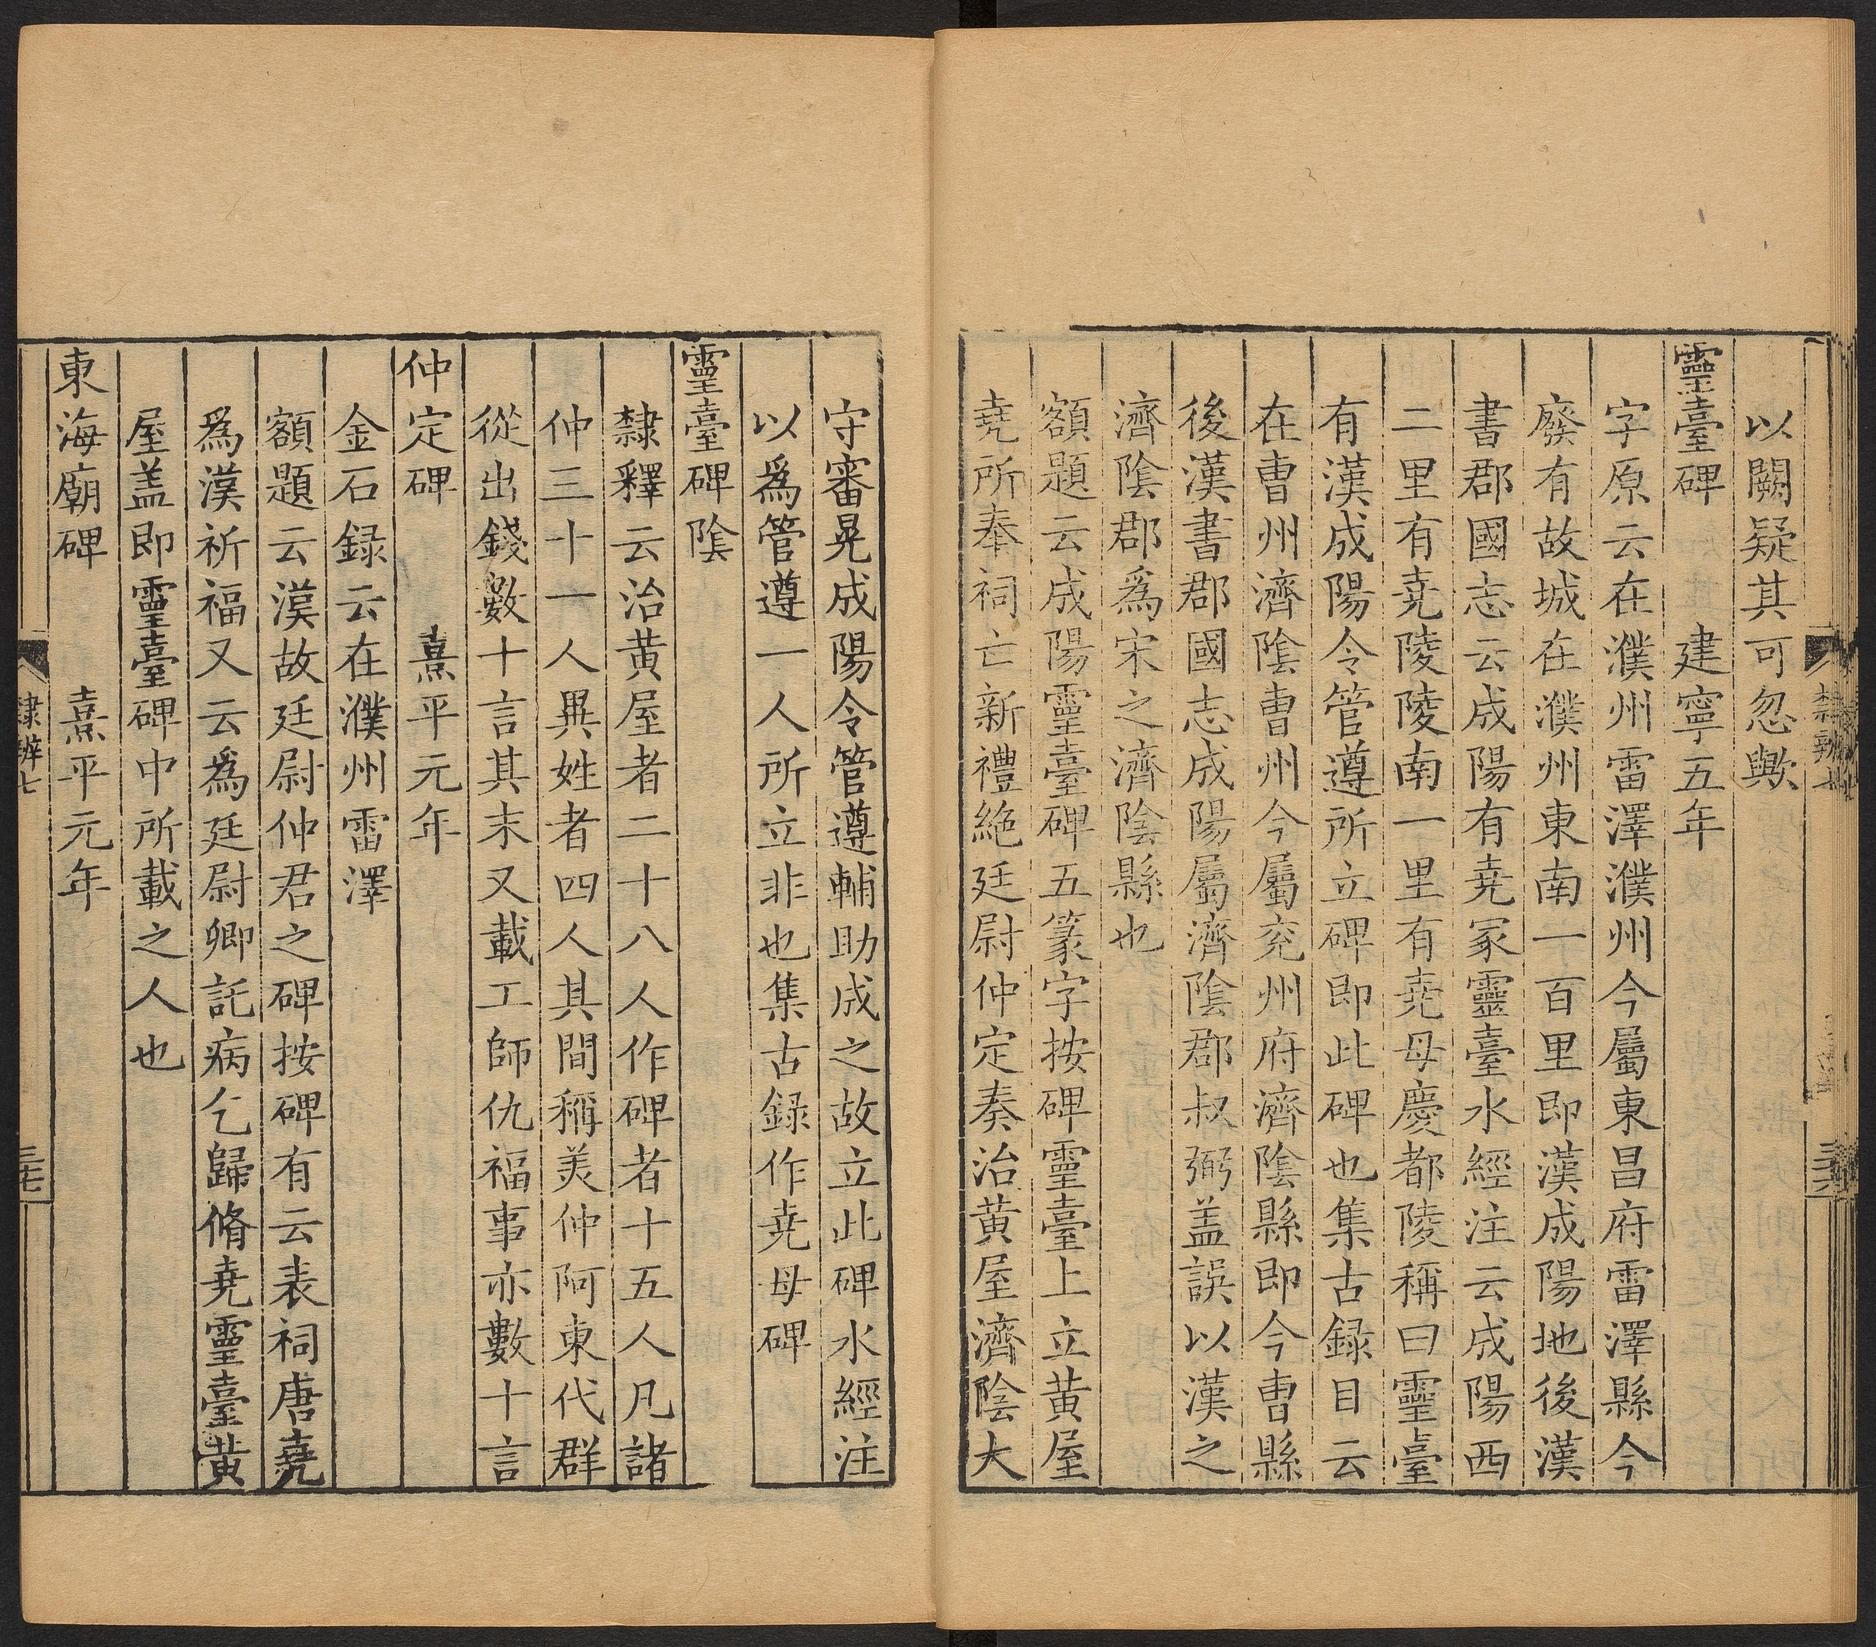 以闕疑其可忽歟
靈臺碑 建寧五年
字原云在濮州雷澤濮州今屬東昌府雷澤縣今
廢有故城在濮州東南一百里即漢成陽地後漢
書郡國志云成陽有堯冢靈臺水經注云成陽西
二里有堯陵陵南一里有堯母慶都陵稱曰靈臺
有漢成陽令管遵所立碑即此碑也集古録目云
在曹州濟陰曹州今屬兖州府濟陰縣即今曹縣
後漢書郡國志成陽屬濟陰郡叔弼盖誤以漢之
濟陰郡爲宋之濟陰縣也
額題云成陽靈臺碑五篆字按碑靈臺上立黄屋
堯所奉祠亡新禮絶廷尉仲定奏治黄屋濟陰大
守審晃成陽令管遵輔助成之故立此碑水經注
以爲管遵一人所立非也集古録作堯母碑
靈臺碑陰
隸釋云治黄屋者二十八人作碑者十五人凡諸
仲三十一人異姓者四人其間稱羙仲阿東代群
從出錢數十言其末又載工師仇福事亦數十言
仲定碑 熹平元年
金石録云在濮州雷澤
額題云漢故廷尉仲君之碑按碑有云表祠唐堯
爲漢祈福又云爲廷尉卿託病乞歸脩堯靈臺黄
屋盖即靈臺碑中所載之人也
東海廟碑 熹平元年
隸辨七
三七